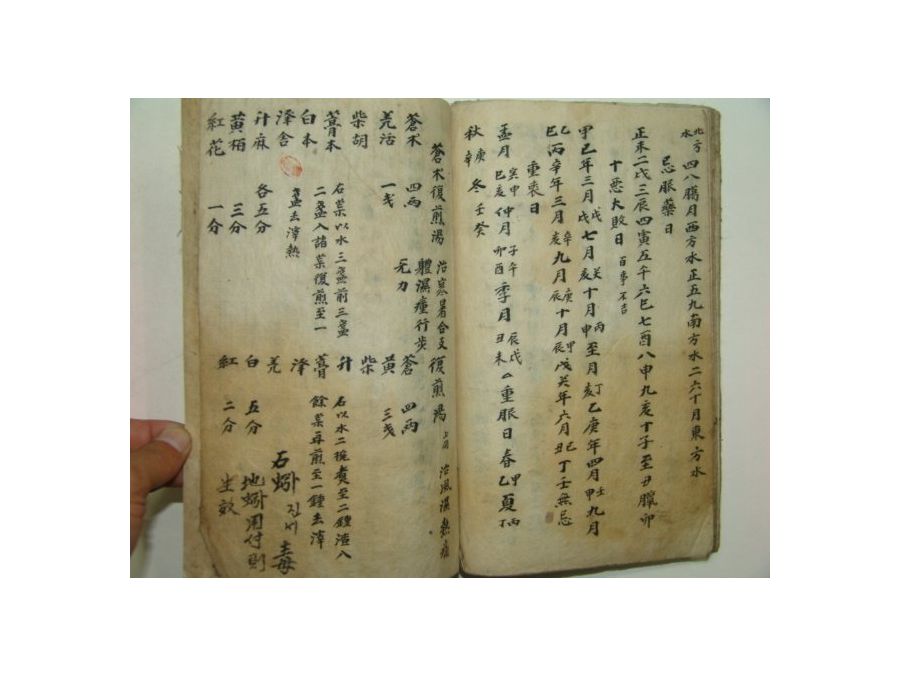 北方水四八臈月西方水正五九南方水二六十月東方水
忌服藥日
正未二戌三辰四寅五午六巳七酉八申九亥十子至丑臘卯
十惡大敗日 百事不吉
甲己年三月戊戌七月癸亥十月丙申至月丁亥乙庚年四月壬申九月
乙巳丙辛年三月辛亥九月庚辰十月甲辰戊癸年六月己丑丁壬無忌
重喪日
孟月寅申巳亥仲月子午卯酉季月辰戌丑未 重服日春甲乙夏丙丁
秋庚辛冬壬癸
蒼朮復煎湯 治寒暑合
體濕重行步
无力
蒼朮 四兩
羌活 一戔
柴胡
藁本
白本
澤舍
升麻 各五分
黃栢 三分
紅花 一分
右藥以水三盞前三盞
二盞入諸藥復煎至一
盞去滓熱
復煎湯 治風濕熱
蒼 四兩
黃 三戔
柴
升
藁
澤
羌
白 五分
紅 二分
右以水二椀煮至二鍾渣入
餘藥再煎至一鍾去滓
石螂 진 毒
地螂用付則
生效